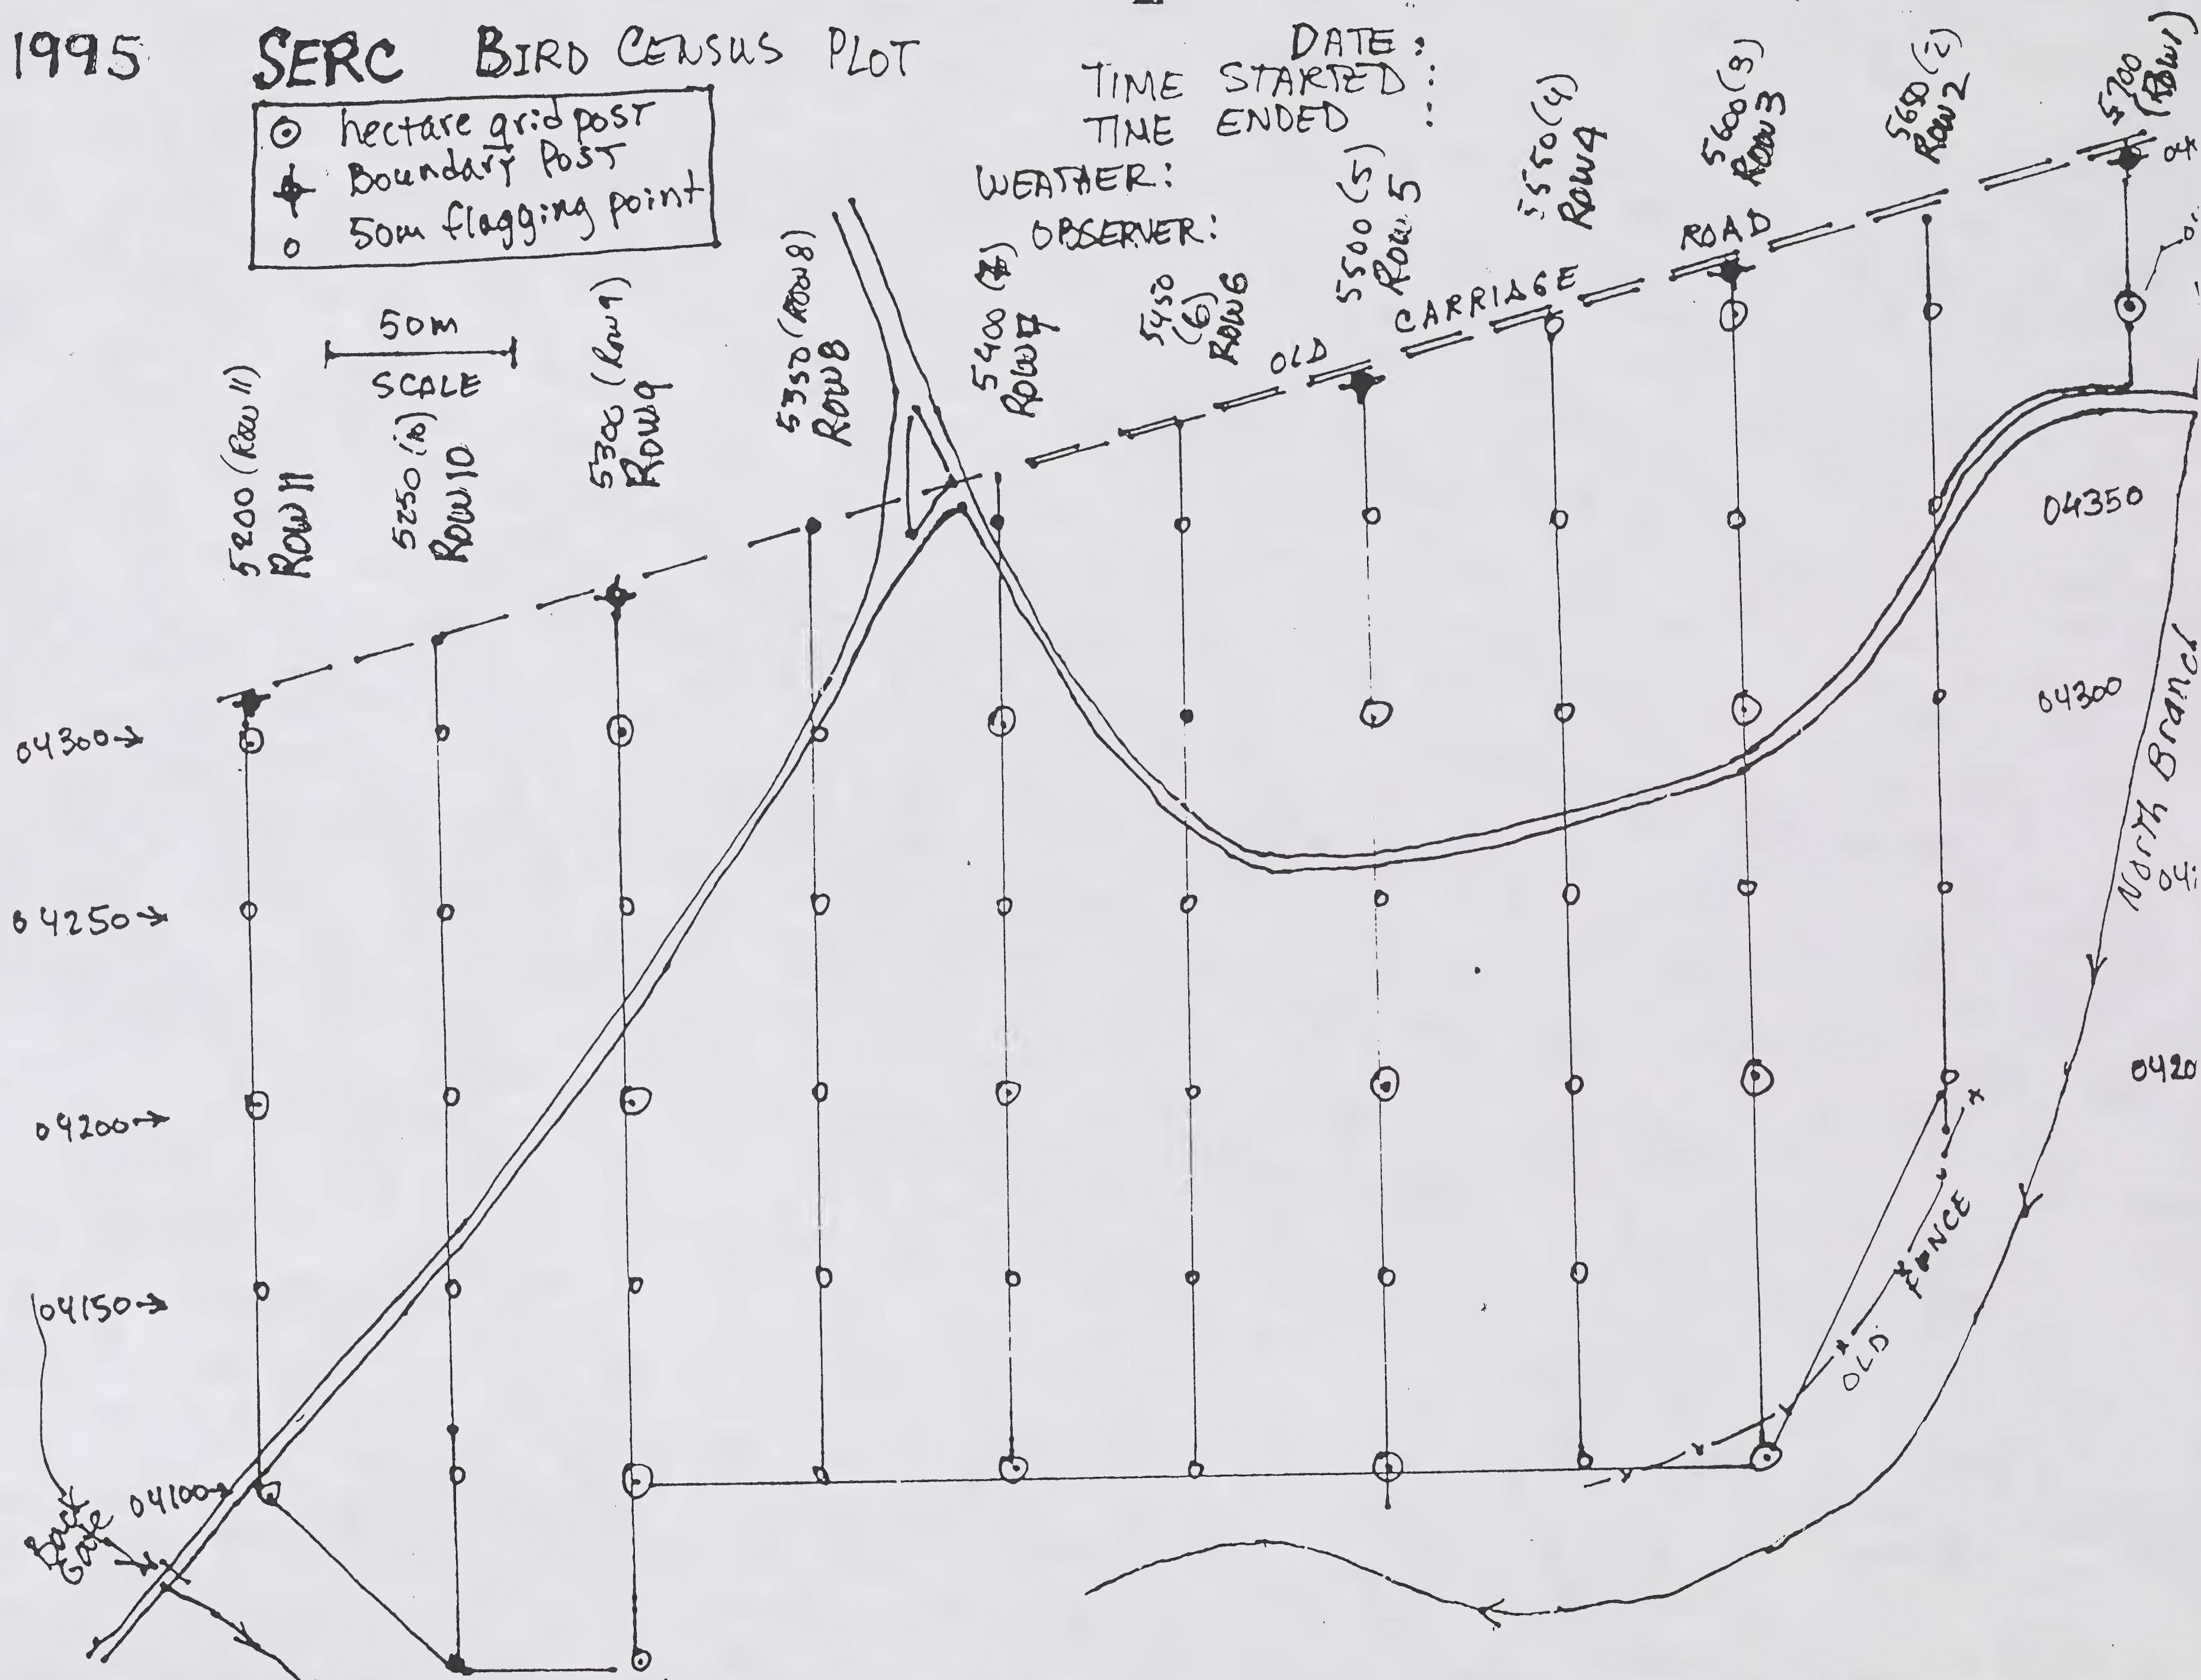 1995 SERC BIRD CENSUS PLOT
DATE :
TIME STARTED :
TIME ENDED :
WEATHER:
OBSERVER:
hectare grid post
Boundary Post
50m flagging point
50m
SCALE
5200 (Row 11)
Row 11
5250 (10)
Row 10
5300 (Row 9)
Row 9
5350 (Row 8)
Row 8
5400 (7)
Row 7
5450
(6)
Row 6
5500 (5)
Row 5
5550 (4)
Row 4
5600 (3)
Row 3
5650 (2)
Row 2
5700
(Row 1)
OLD CARRIAGE ROAD
04350
04300
North Branch
0420
04300→
04250→
04200→
04150→
04100→
Back
Gate
OLD FENCE